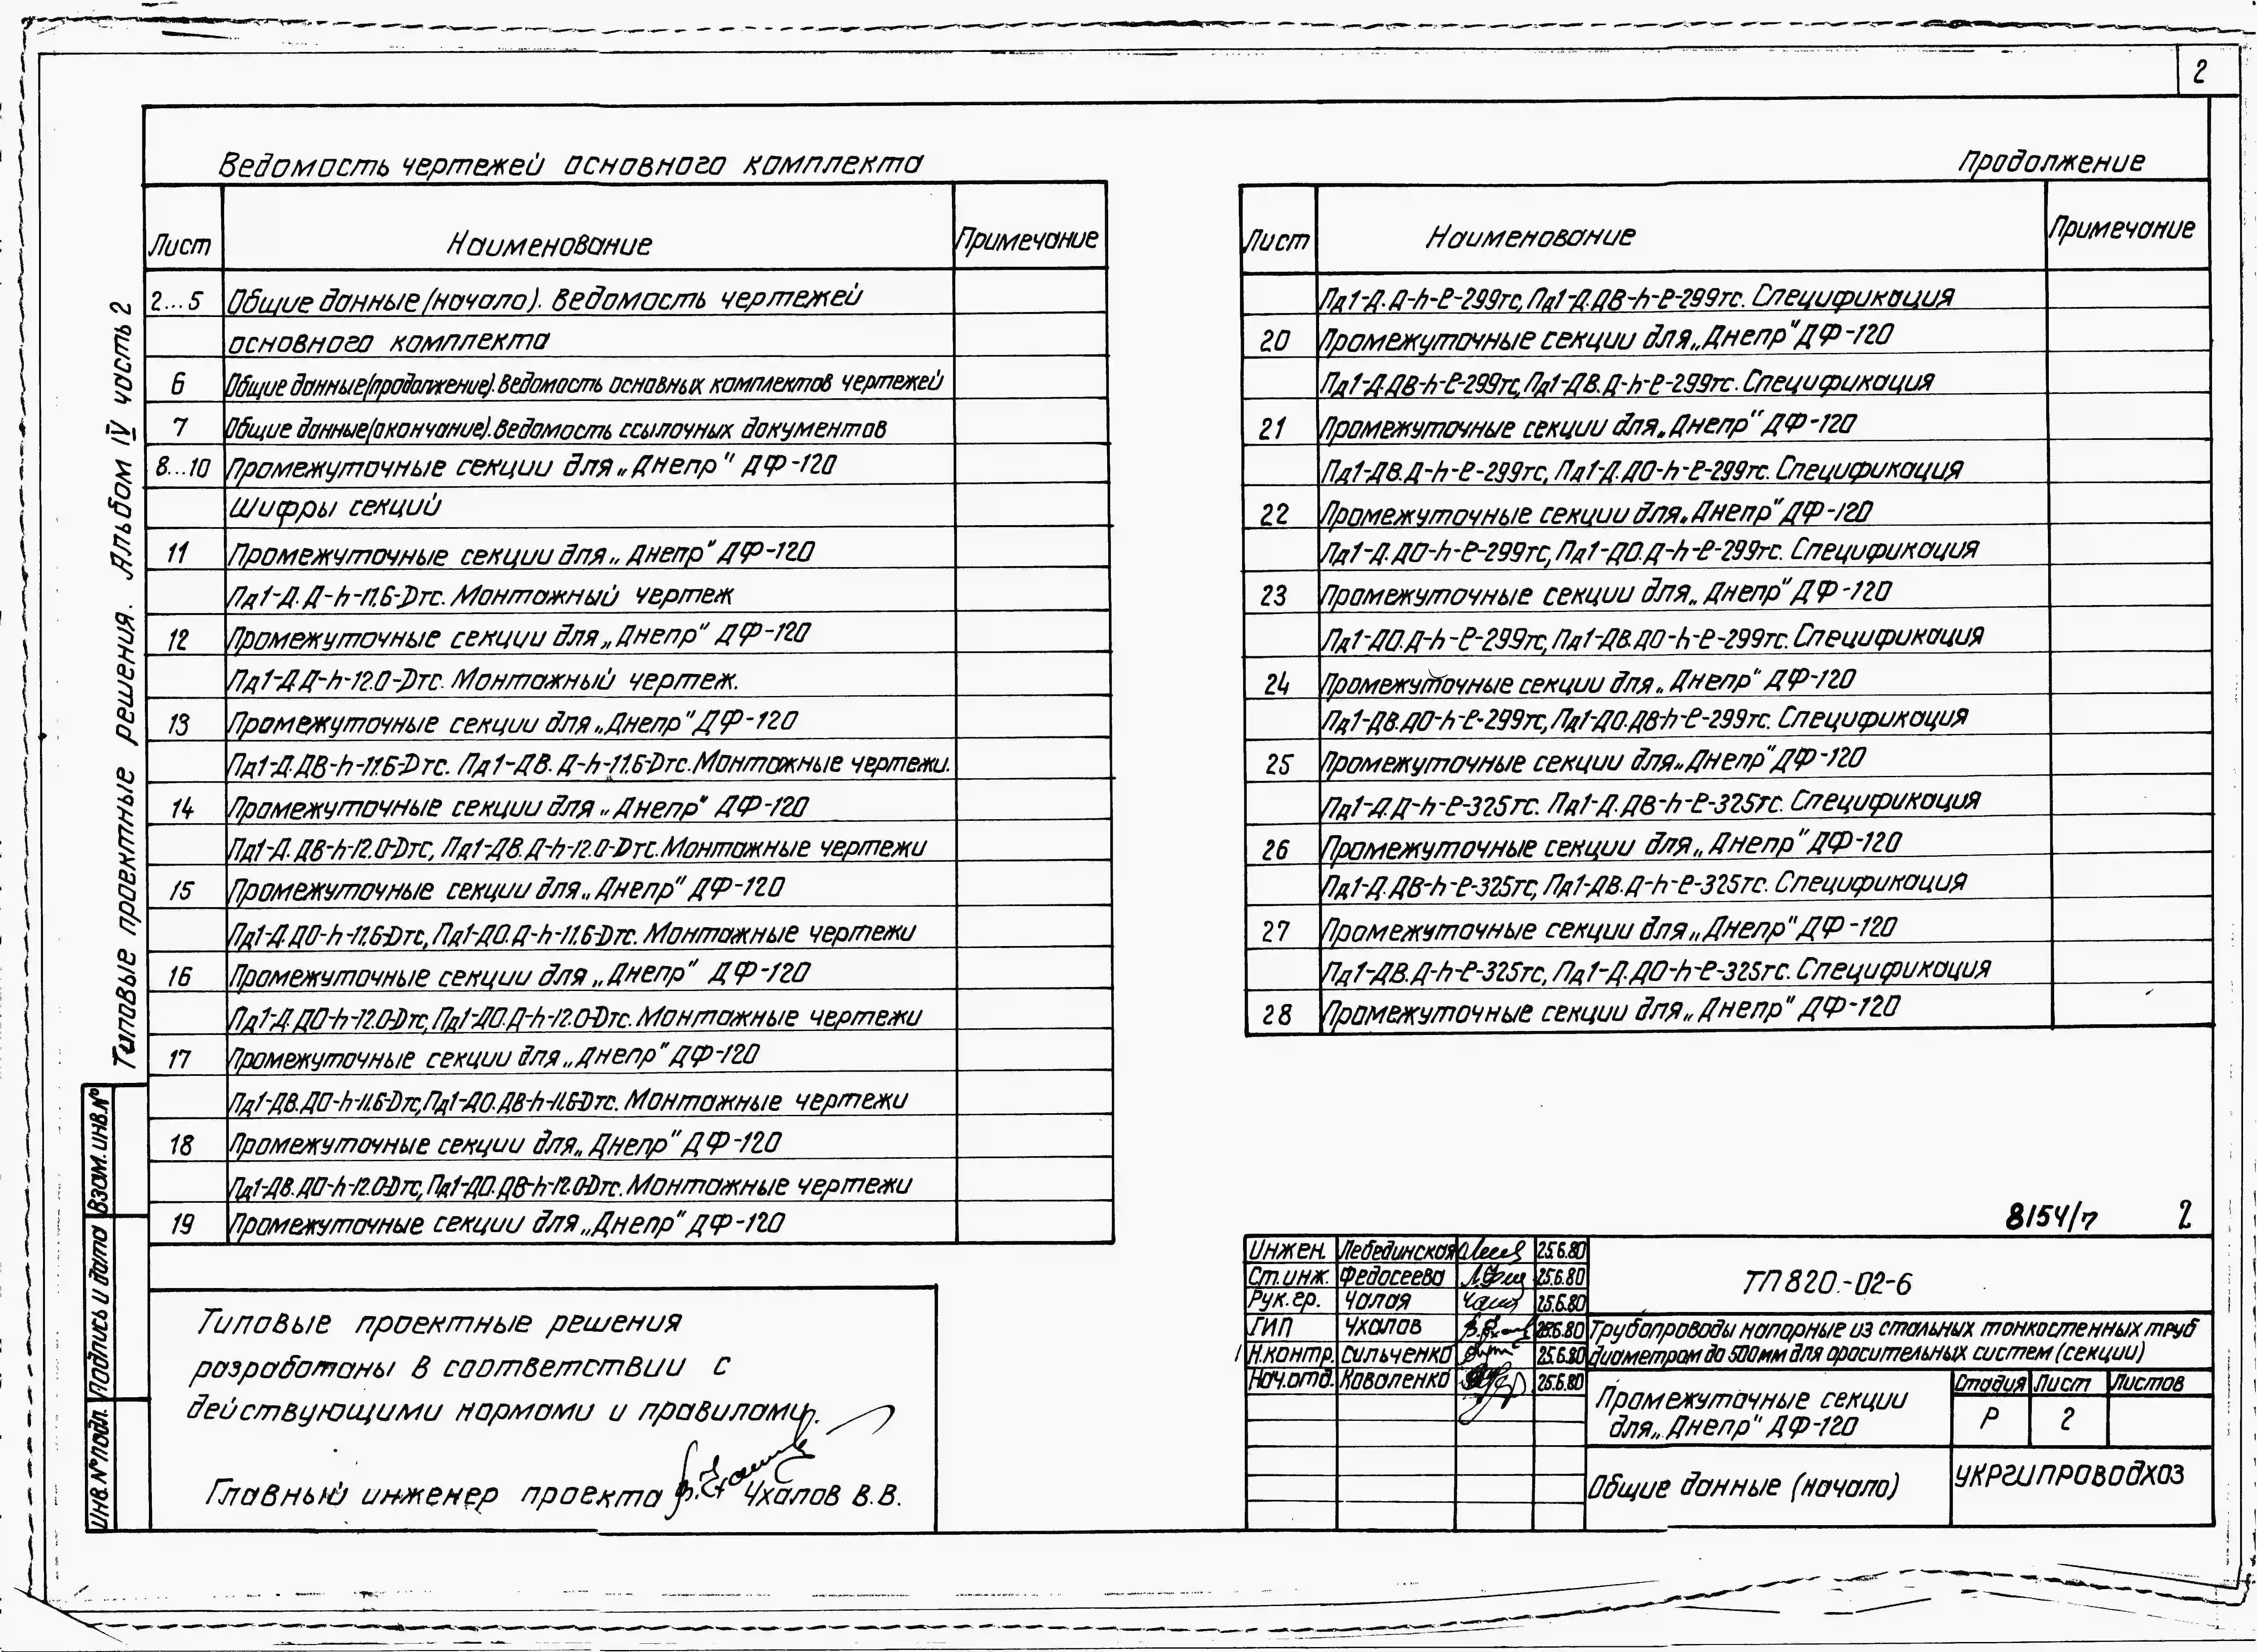 2
Ведомость чертежей основного комплекта
Лист Наименование Примечание
2...5 Общие данные (начало). Ведомость чертежей
основного комплекта
6 Общие данные (продолжение). Ведомость основных комплектов чертежей
7 Общие данные (окончание). Ведомость ссылочных документов
8...10 Промежуточные секции для „Днепр" ДФ-120
Шифры секций
11 Промежуточные секции для „Днепр" ДФ-120
Пд1-Д.Д-h-11.6-Dтс. Монтажный чертеж
12 Промежуточные секции для „Днепр" ДФ-120
Пд1-Д.Д-h-12.0-Dтс. Монтажный чертеж.
13 Промежуточные секции для „Днепр" ДФ-120
Пд1-Д.ДВ-h-11.6-Dтс. Пд1-ДВ.Д-h-11.6-Dтс. Монтажные чертежи.
14 Промежуточные секции для „Днепр" ДФ-120
Пд1-Д.ДВ-h-12.0-Dтс, Пд1-ДВ.Д-h-12.0-Dтс. Монтажные чертежи
15 Промежуточные секции для „Днепр" ДФ-120
Пд1-Д.ДО-h-11.6-Dтс, Пд1-ДО.Д-h-11.6-Dтс. Монтажные чертежи
16 Промежуточные секции для „Днепр" ДФ-120
Пд1-Д.ДО-h-12.0-Dтс, Пд1-ДО.Д-h-12.0-Dтс. Монтажные чертежи
17 Промежуточные секции для „Днепр" ДФ-120
Пд1-ДВ.ДО-h-11.6-Dтс, Пд1-ДО.ДВ-h-11.6-Dтс. Монтажные чертежи
18 Промежуточные секции для „Днепр" ДФ-120
Пд1-ДВ.ДО-h-12.0-Dтс, Пд1-ДО.ДВ-h-12.0-Dтс. Монтажные чертежи
19 Промежуточные секции для „Днепр" ДФ-120
Продолжение
Лист Наименование Примечание
Пд1-Д.Д-h-ℓ-299тс, Пд1-Д.ДВ-h-ℓ-299тс. Спецификация
20 Промежуточные секции для „Днепр" ДФ-120
Пд1-Д.ДВ-h-ℓ-299тс, Пд1-ДВ.Д-h-ℓ-299тс. Спецификация
21 Промежуточные секции для „Днепр" ДФ-120
Пд1-ДВ.Д-h-ℓ-299тс, Пд1-Д.ДО-h-ℓ-299тс. Спецификация
22 Промежуточные секции для „Днепр" ДФ-120
Пд1-Д.ДО-h-ℓ-299тс, Пд1-ДО.Д-h-ℓ-299тс. Спецификация
23 Промежуточные секции для „Днепр" ДФ-120
Пд1-ДО.Д-h-ℓ-299тс, Пд1-ДВ.ДО-h-ℓ-299тс. Спецификация
24 Промежуточные секции для „Днепр" ДФ-120
Пд1-ДВ.ДО-h-ℓ-299тс, Пд1-ДО.ДВ-h-ℓ-299тс. Спецификация
25 Промежуточные секции для „Днепр" ДФ-120
Пд1-Д.Д-h-ℓ-325тс. Пд1-Д.ДВ-h-ℓ-325тс. Спецификация
26 Промежуточные секции для „Днепр" ДФ-120
Пд1-Д.ДВ-h-ℓ-325тс, Пд1-ДВ.Д-h-ℓ-325тс. Спецификация
27 Промежуточные секции для „Днепр" ДФ-120
Пд1-ДВ.Д-h-ℓ-325тс, Пд1-Д.ДО-h-ℓ-325тс. Спецификация
28 Промежуточные секции для „Днепр" ДФ-120
Типовые проектные решения. Альбом IV часть 2
Взам. инв. №
Подпись и дата
Инв. № подл.
Типовые проектные решения
разработаны в соответствии с
действующими нормами и правилами.
Главный инженер проекта Чхалов В.В.
8154/7 2
Инжен. Лебединская 25.6.80
Ст. инж. Федосеева 25.6.80
Рук. гр. Чалая 25.6.80
ГИП Чхалов 25.6.80
Н.контр. Сильченко 25.6.80
Нач.отд. Коваленко 25.6.80
ТП 820-02-6
Трубопроводы напорные из стальных тонкостенных труб
диаметром до 500мм для оросительных систем (секции)
Промежуточные секции
для „Днепр" ДФ-120
Стадия Лист Листов
Р 2
Общие данные (начало)
УКРГИПРОВОДХОЗ